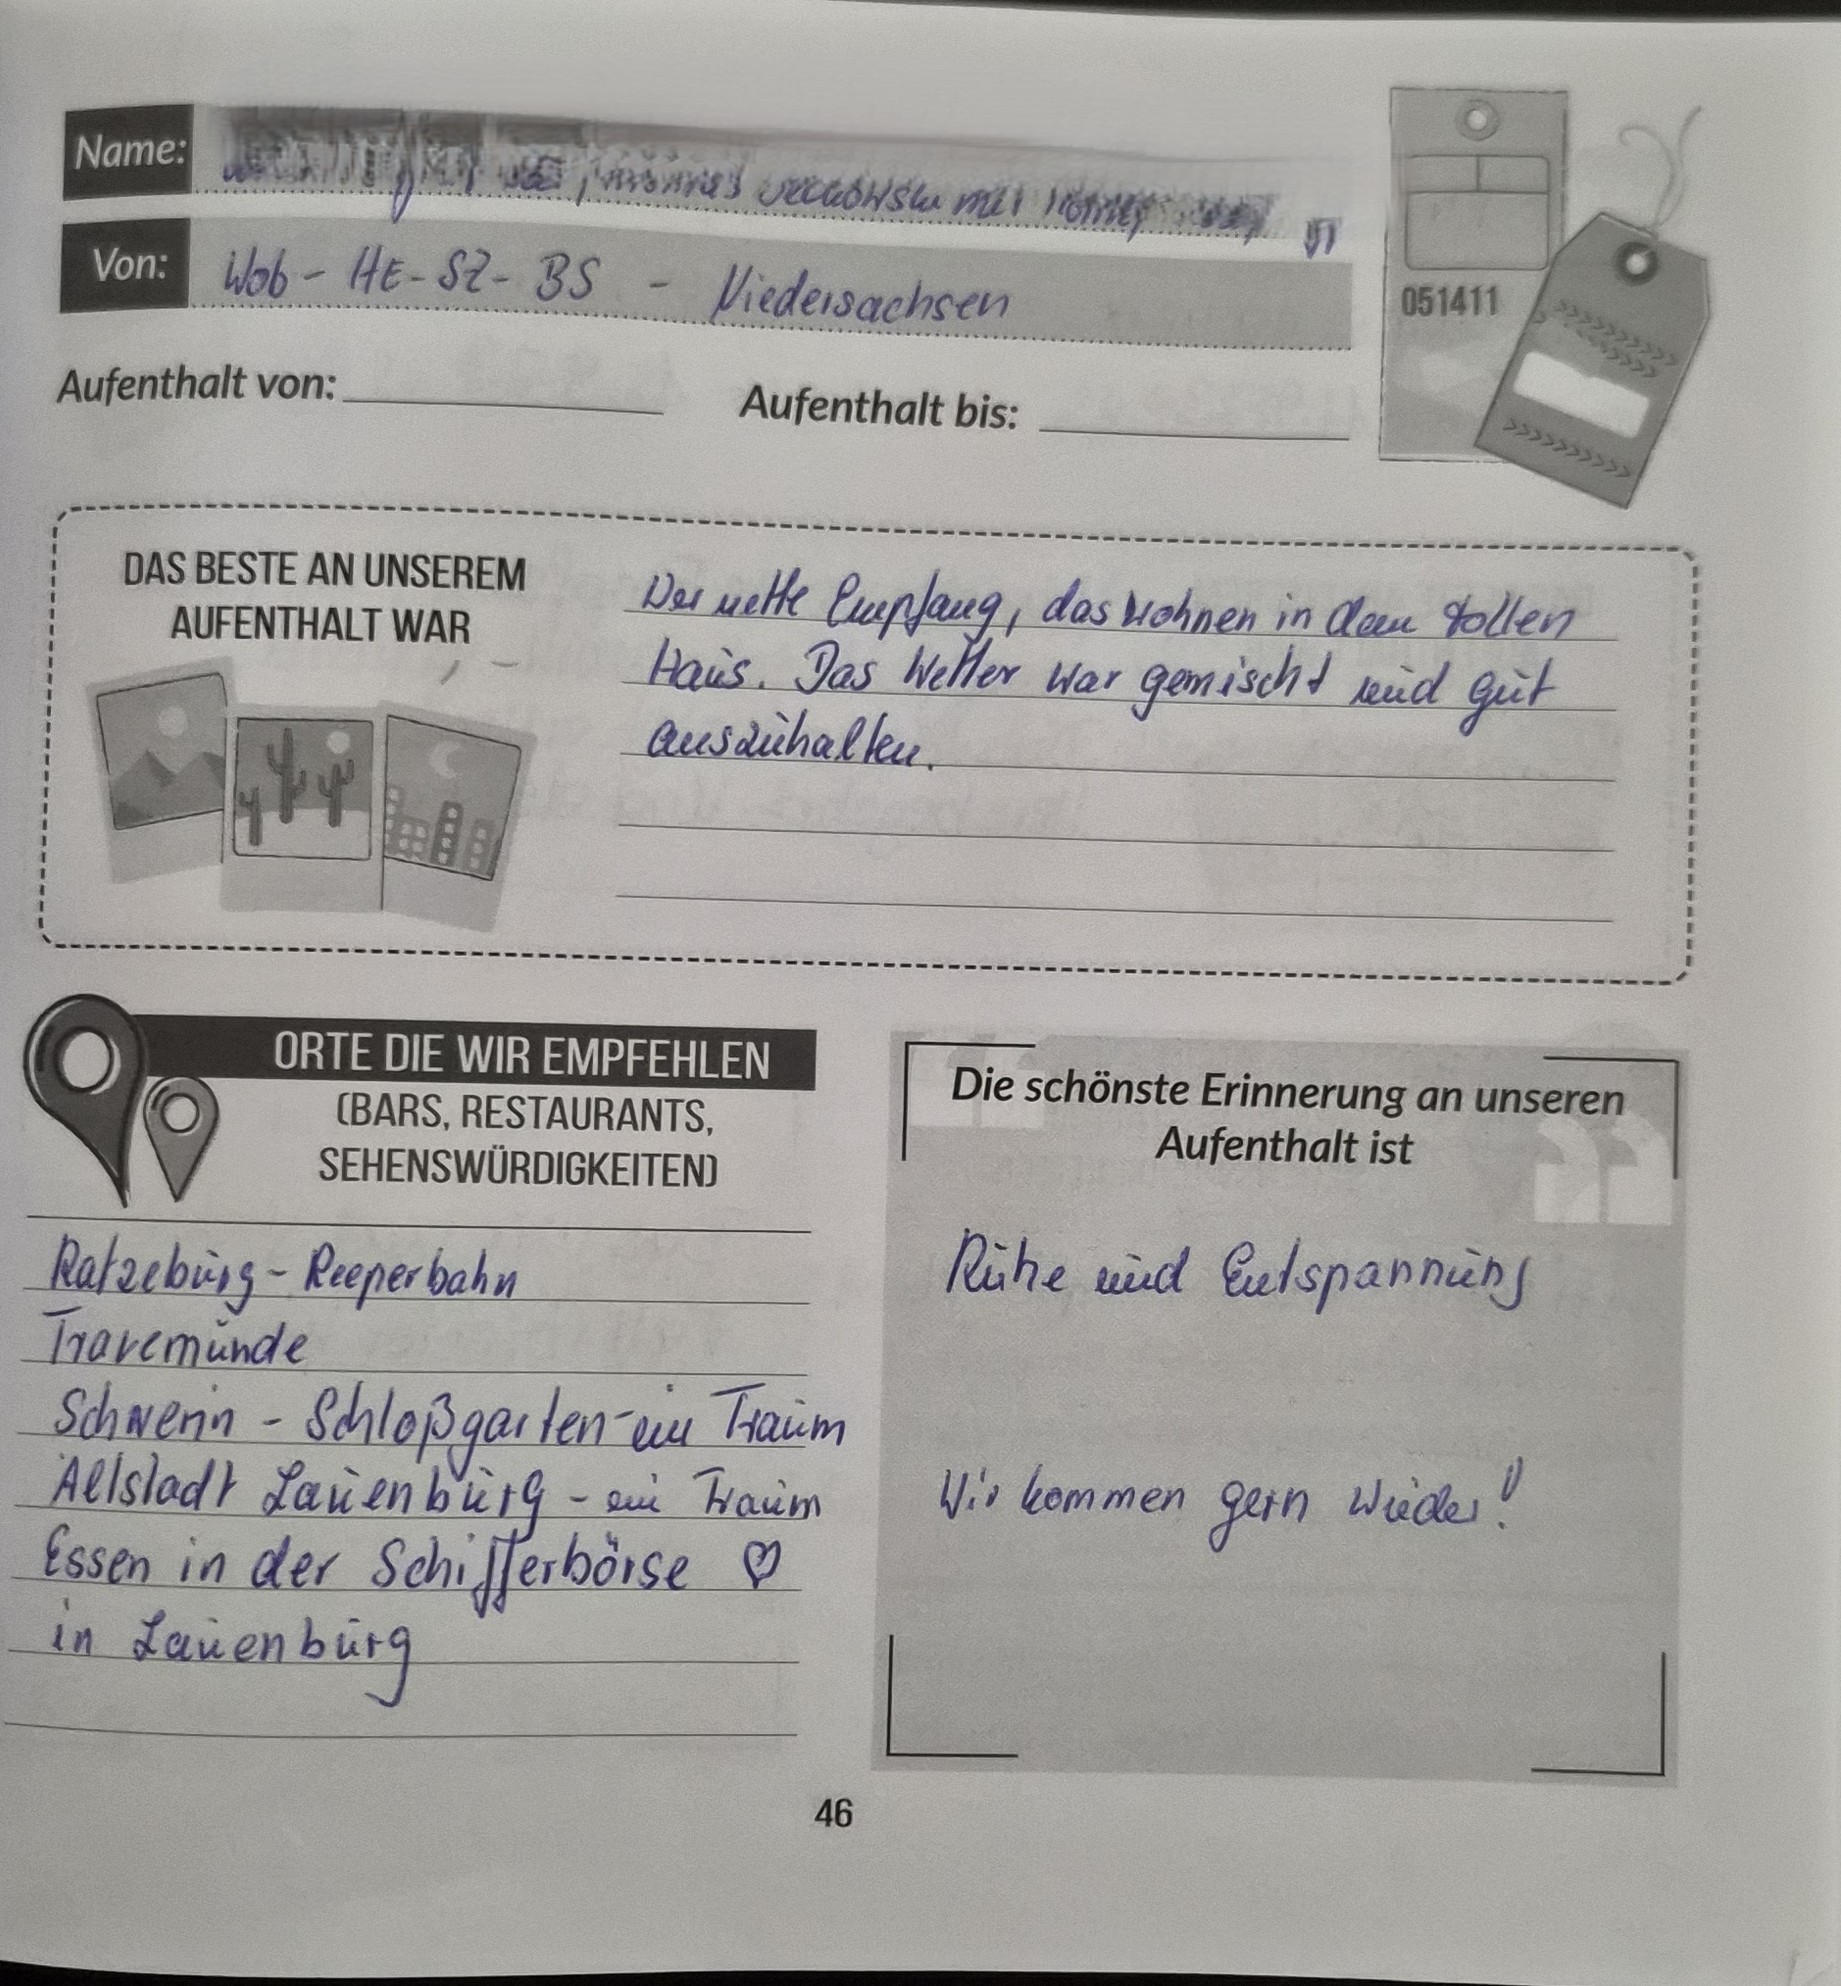 Name:
Von: Wob - HE - SZ - BS - Niedersachsen
051411
Aufenthalt von:
Aufenthalt bis:
DAS BESTE AN UNSEREM
AUFENTHALT WAR
Der nette Empfang, das Wohnen in dem tollen
Haus. Das Wetter war gemischt und gut
auszuhalten.
ORTE DIE WIR EMPFEHLEN
(BARS, RESTAURANTS,
SEHENSWÜRDIGKEITEN)
Ratzeburg - Reeperbahn
Travemünde
Schwerin - Schloßgarten - ein Traum
Altstadt Lauenburg - ein Traum
Essen in der Schifferbörse ♡
in Lauenburg
Die schönste Erinnerung an unseren
Aufenthalt ist
Ruhe und Entspannung
Wir kommen gern wieder!
46